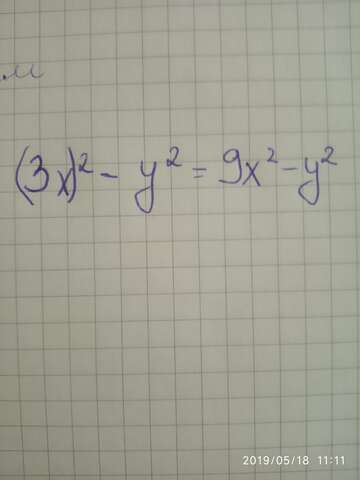 м
(3x)² - y² = 9x² - y²
2019/05/18 11:11